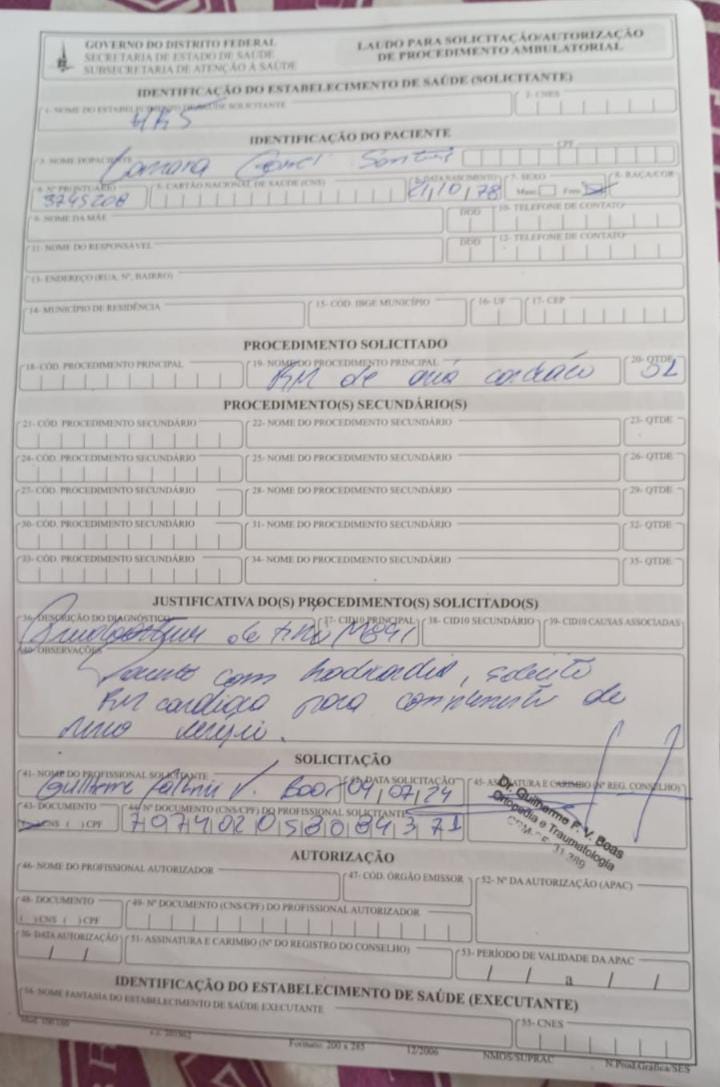 GOVERNO DO DISTRITO FEDERAL
SECRETARIA DE ESTADO DE SAÚDE
SUBSECRETARIA DE ATENÇÃO À SAÚDE
LAUDO PARA SOLICITAÇÃO/AUTORIZAÇÃO
DE PROCEDIMENTO AMBULATORIAL
IDENTIFICAÇÃO DO ESTABELECIMENTO DE SAÚDE (SOLICITANTE)
1- NOME DO ESTABELECIMENTO DE SAÚDE SOLICITANTE
2- CNES
IDENTIFICAÇÃO DO PACIENTE
3- NOME DO PACIENTE
CPF
4- Nº PRONTUÁRIO
5- CARTÃO NACIONAL DE SAÚDE (CNS)
6- DATA NASCIMENTO
7- SEXO
8- RAÇA/COR
3745208
21/10/78
Masc.
Fem.
9- NOME DA MÃE
DDD
10- TELEFONE DE CONTATO
11- NOME DO RESPONSÁVEL
DDD
12- TELEFONE DE CONTATO
13- ENDEREÇO (RUA, Nº, BAIRRO)
14- MUNICÍPIO DE RESIDÊNCIA
15- COD. IBGE MUNICÍPIO
16- UF
17- CEP
PROCEDIMENTO SOLICITADO
18- CÓD. PROCEDIMENTO PRINCIPAL
19- NOME DO PROCEDIMENTO PRINCIPAL
20- QTDE
RM de
PROCEDIMENTO(S) SECUNDÁRIO(S)
21- CÓD. PROCEDIMENTO SECUNDÁRIO
22- NOME DO PROCEDIMENTO SECUNDÁRIO
23- QTDE
24- CÓD. PROCEDIMENTO SECUNDÁRIO
25- NOME DO PROCEDIMENTO SECUNDÁRIO
26- QTDE
27- CÓD. PROCEDIMENTO SECUNDÁRIO
28- NOME DO PROCEDIMENTO SECUNDÁRIO
29- QTDE
30- CÓD. PROCEDIMENTO SECUNDÁRIO
31- NOME DO PROCEDIMENTO SECUNDÁRIO
32- QTDE
33- CÓD. PROCEDIMENTO SECUNDÁRIO
34- NOME DO PROCEDIMENTO SECUNDÁRIO
35- QTDE
JUSTIFICATIVA DO(S) PROCEDIMENTO(S) SOLICITADO(S)
36- DESCRIÇÃO DO DIAGNÓSTICO
37- CID10 PRINCIPAL
38- CID10 SECUNDÁRIO
39- CID10 CAUSAS ASSOCIADAS
40- OBSERVAÇÕES
com
RM para de
SOLICITAÇÃO
41- NOME DO PROFISSIONAL SOLICITANTE
42- DATA SOLICITAÇÃO
45- ASSINATURA E CARIMBO (Nº REG. CONSELHO)
Guilherme V. Boas
04/07/24
43- DOCUMENTO
44- Nº DOCUMENTO (CNS/CPF) DO PROFISSIONAL SOLICITANTE
CNS ( ) CPF
Dr. Guilherme F. V. Boas
Ortopedia e Traumatologia
AUTORIZAÇÃO
46- NOME DO PROFISSIONAL AUTORIZADOR
47- CÓD. ÓRGÃO EMISSOR
52- Nº DA AUTORIZAÇÃO (APAC)
48- DOCUMENTO
( ) CNS ( ) CPF
49- Nº DOCUMENTO (CNS/CPF) DO PROFISSIONAL AUTORIZADOR
50- DATA AUTORIZAÇÃO
51- ASSINATURA E CARIMBO (Nº DO REGISTRO DO CONSELHO)
53- PERÍODO DE VALIDADE DA APAC
/ / a / /
IDENTIFICAÇÃO DO ESTABELECIMENTO DE SAÚDE (EXECUTANTE)
54- NOME FANTASIA DO ESTABELECIMENTO DE SAÚDE EXECUTANTE
55- CNES
Formato: 200 x 285
12/2006
NMOS/SUPRAC
N.Prod.Gráfica/SES